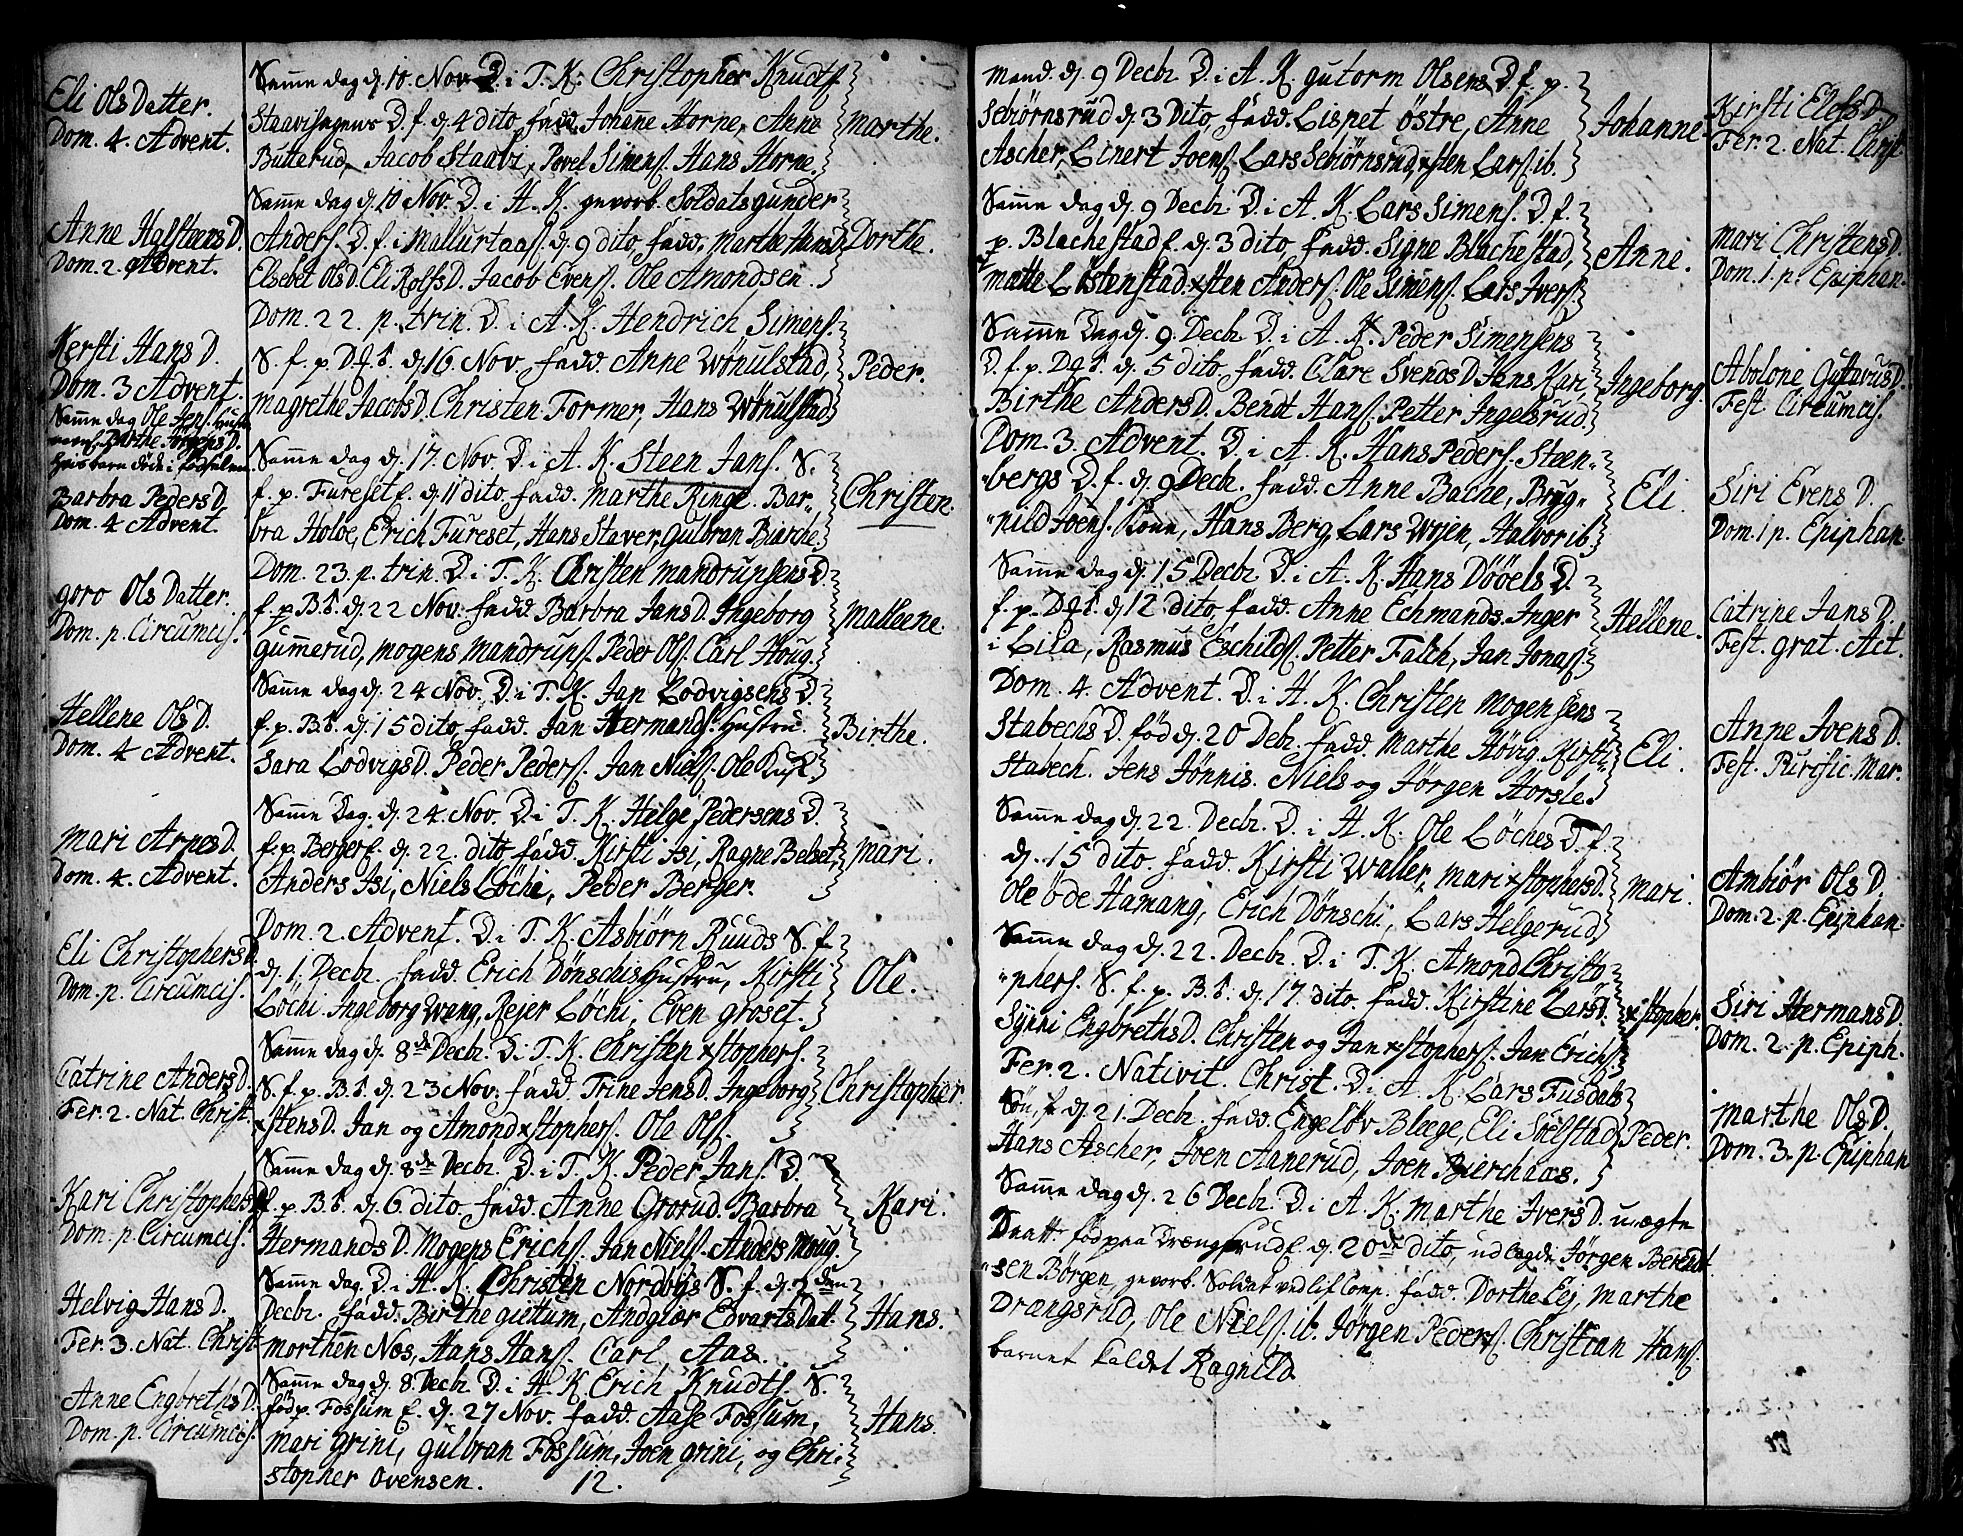 Eli Ols Datter.
Dom. 4. Advent.
Anne Halsteens D.
Dom. 2. Advent.
Kersti Hans D.
Dom. 3 Advent.
Same dag Ole Jens.
Birthe Jørgens D.
barn døde i fødselen
Barbra Peders D.
Dom. 4 Advent.
goro Ols Datter.
Dom. p. Circumcis.
Hellene Ols D.
Dom. 4 Advent.
Mari Arnes D.
Dom. 4. Advent.
Eli Christophers D.
Dom. p. Circumcis.
Catrine Anders D.
Fer. 2. Nat. Christ.
Kari Christophers D.
Dom. p. Circumcis.
Helvig Hans D.
Fer. 3. Nat. Christ
Anne Engbreths D.
Dom. p. Circumcis.
Same dag d. 10 Nov. D. i T. K. Christopher Knuds.
Staavihagens D. f. d. 4 dito, fadd. Johane Horne, Anne
Butterud, Jacob Staavi, Povel Simens. Hans Horne.
Marthe.
Same dag d. 10 Nov. D. i H. K. gevorb. Soldats gunder
Anders. D. f. i Mallurtaas. d. 9 dito, fadd. Marthe Hans D.
Elsebet Ols D. Eli Rolfs D. Jacob Evens. Ole Amondsen.
Dorthe.
Dom. 22. p. trin. D. i A. K. Hendrich Simens.
S. f. p. d. 16 Nov. fadd. Anne Wønulstad,
Magrethe Jacobs D. Christen Former, Hans Wønulstad.
Peder.
Same dag d. 17. Nov. D. i A. K. Steen Jans. S.
f. p. Fureset f. d. 11 dito. fadd. Marthe Ringe. Bar-
bra Holbe, Erich Fureset, Hans Staver, Gulbran Biarche.
Christen.
Dom. 23. p. trin. D. i T. K. Christen Mandrupsens D.
f. p. B. S. d. 22 Nov. fadd. Barbra Jans D. Ingeborg
Gumerud, Mogens Mandrups. Peder Ols. Carl Houg.
Malleene.
Same dag d. 24 Nov. D. i T. K. Jan Lodvigsens D.
f. p. B. S. d. 15 dito, fadd. Jan Hermands. Hustru.
Sara Lodvigs D. Peder Peders. Jan Niels. Ole Kusk.
Birthe.
Same Dag. d. 24. Nov. D. i T. K. Helge Pedersens D.
f. p. Berger f. d. 22. dito, fadd. Kirsti Isi, Ragne Belset,
Anders Isi, Niels Løchi, Peder Berger.
Mari.
Dom. 2. Advent. D. i T. K. Asbiørn Ruuds S. f.
d. 1. Decbr. fadd. Erich Dønschis Hustru, Kirsti
Løchi. Ingeborg Wang, Rejer Løchi, Even groset.
Ole.
Same dag d. 8de Decbr. D. i T. K. Christen xstophers.
S. f. p. B. S. d. 23 Nov. fadd. Trine Jens D. Ingeborg
xstens D. Jan og Amond xstophers. Ole Ols.
Christopher.
Same dag d. 8de Decbr. D. i T. K. Peder Jans. D.
f. p. B. S. d. 6 dito. fadd. Anne Grorud. Barbra
Hermands D. Mogens Erichs. Jan Niels. Anders Moug.
Kari.
Same dag. D. i H. K. Christen Nordbys S. f. d. 7 den
Decbr. fadd. Birthe giettum, Andgiær Edvarts Datt.
Morthen Næs, Hans Hans. Carl, Aas.
Hans.
Same dag d. 8. Decbr. D. i H. K. Erich Knudts. S.
fød p. Fossum f. d. 27 Nov. fadd. Aase Fossum,
Mari Grini, gulbran Fossum, Joen grini, og Chri-
stopher Ovensen. 12.
Hans.
Mand. d. 9 Decbr. D. i A. K. gutorm Olsens D. f. p.
Sebiørnsrud d. 3 Dito, fadd. Lispet Østre, Anne
Ascher, Linert Joens. Lars Sebiørnsrud, xsten Lars. ib.
Johanne.
Same dag d. 9 Decbr. D. i A. K. Lars Simens. D. f.
p. Blachestad f. d. 3 dito, fadd. Signe Blachestad,
Matte Løstenstad. xsten Anders. Ole Simens. Lars Ivers.
Anne.
Same Dag d. 9. Decbr. D. i A. K. Peder Simensens
D. f. p. d. 5 dito, fadd. Clare Svends D. Jans Kari,
Birthe Anders D. Bendt Hans. Petter Ingelsrud.
Ingeborg.
Dom. 3. Advent. D. i A. K. Hans Peders. Steen-
bergs D. f. d. 9 Dech. fadd. Anne Bache, Bryg-
nild Joens. Kone, Hans Berg, Lars Wøjen, Halvor ib.
Eli.
Same dag d. 15 Decbr. D. i A. K. Hans Døöels D.
f. p. d. 12 dito, fadd. Anne Echmands. Inger
i Lila, Rasmus Eschilds. Petter Falch, Jan Jonas.
Hellene.
Dom. 4. Advent. D. i H. K. Christen Mogensens
Stabechs D. fød d. 20 Debr. fadd. Marthe Høvig. Kirsti
Stabech. Jens Jønnis. Niels og Jørgen Horsle.
Eli.
Same dag d. 22. Decbr. D. i H. K. Ole Løches D. f.
d. 15 dito, fadd. Kirsti Waller, Mari xstophers D.
Ole Øde Hamang, Erich Dønschi, Lars Helgerud.
Mari.
Same dag d. 22. Decbr. D. i T. K. Amond Christo-
phers. S. f. p. B. S. d. 17. dito. fadd. Kirstine Lars D.
Synni Engbreths D. Christen og Jan xstophers. Jan Erichs.
xstopher.
Fer. 2. Nativit. Christ. D. i A. K. Lars Fusdals
Søn, f. d. 21. Decbr. fadd. Engeløv Blege, Eli Soelstad,
Hans Ascher, Joen Aanerud, Joen Bierchaas.
Peder.
Same dag d. 26 Decbr. D. i A. K. Marthe Ivers D. uægte
Datt. fød paa Drængsrud f. d. 20de dito, udlagde Jørgen Berendt-
sen Børgen, gevorb. Soldat ved Lif Comp. fadd. Dorthe Eej, Marthe
Drængsrud, Ole Niels. ib. Jørgen Peders. Christian Hans.
barnet kaldet Ragnild.
Kirsti Elefs D.
Fer. 2. Nat. Christ
Mari Christens D.
Dom. 1. p. Epiphan.
Abolone Gustavus D.
Fest. Circumcis.
Siri Evens D.
Dom. 1 p. Epiphan.
Catrine Jans D.
Fest. grat. Act.
Anne Ivens D.
Fest. Purific. Mar.
Ambiør Ols D.
Dom. 2. p. Epiphan.
Siri Hermans D.
Dom. 2. p. Epiph.
Marthe Ols D.
Dom. 3. p. Epiphan